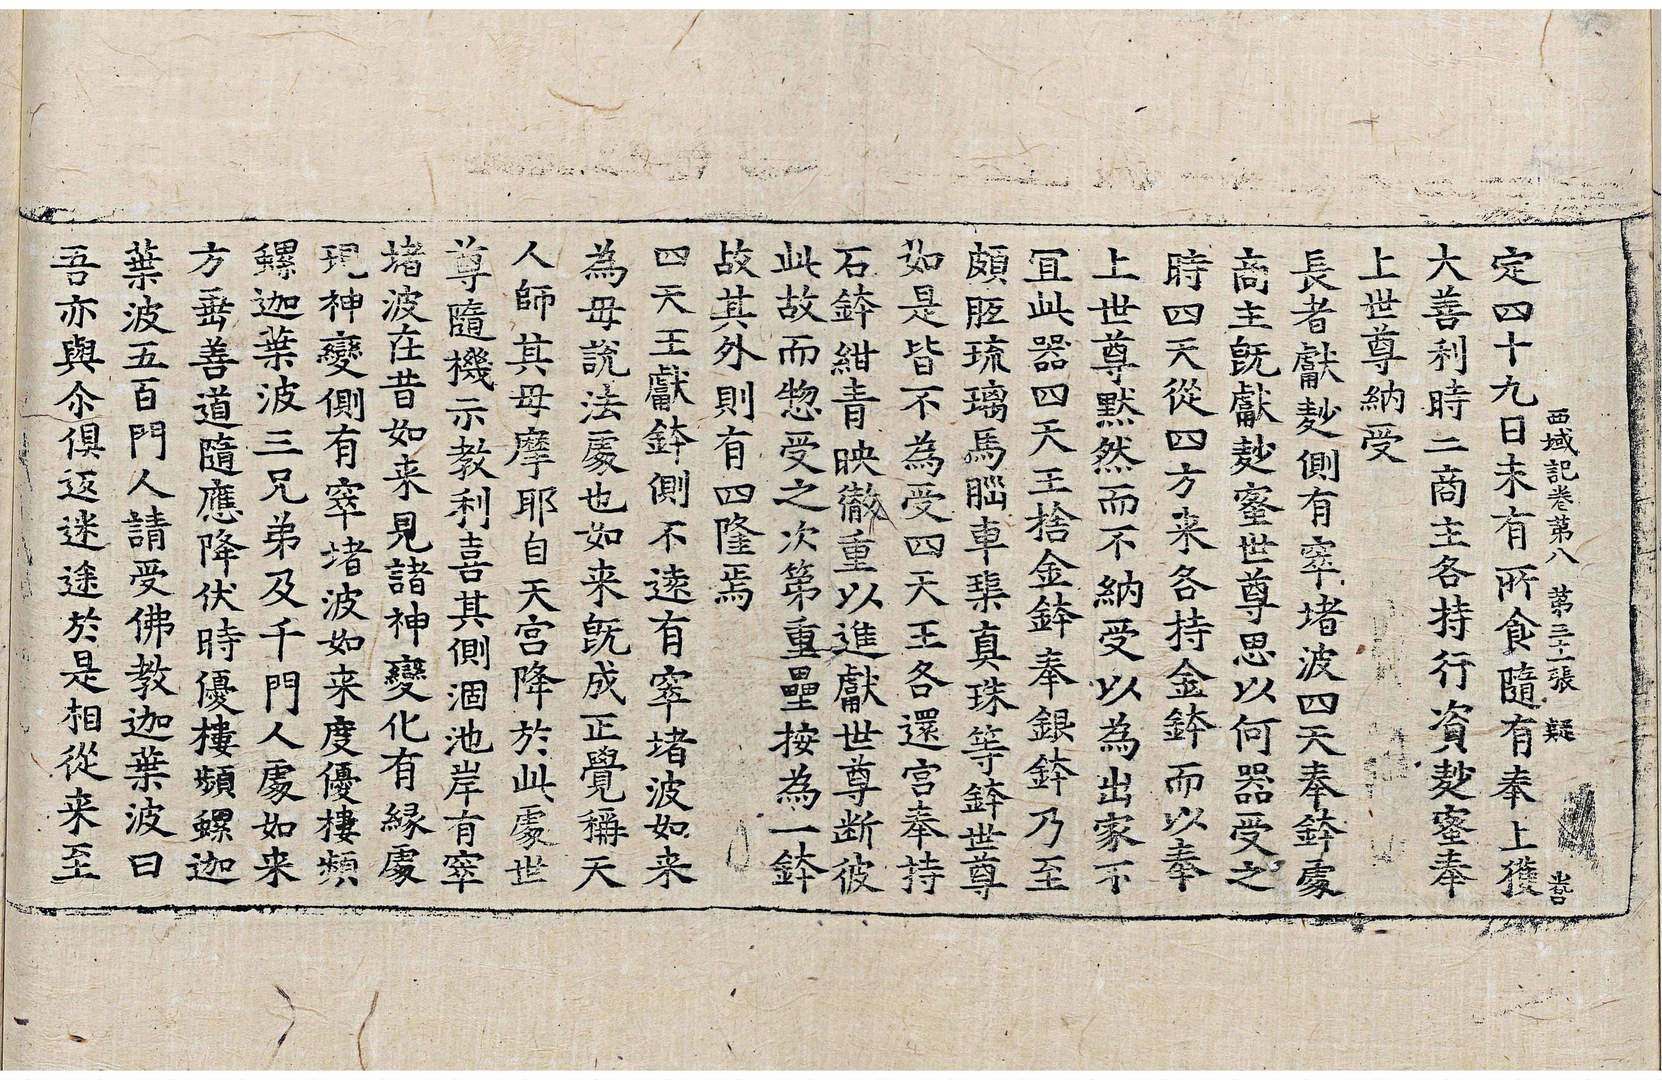 西域記卷第八 第三十一張 疑
定四十九日未有所食隨有奉上獲
大善利時二商主各持行資麨蜜奉
上世尊納受
長者獻麨側有窣堵波四天奉鉢處
商主旣獻麨蜜世尊思以何器受之
時四天從四方来各持金鉢而以奉
上世尊默然而不納受以為出家不
冝此器四天王捨金鉢奉銀鉢乃至
頗胝琉璃馬腦車𤦲真珠等鉢世尊
如是皆不為受四天王各還宫奉持
石鉢紺青映徹重以進獻世尊断彼
此故而惣受之次第重壘按為一鉢
故其外則有四隆焉
四天王獻鉢側不遠有窣堵波如来
為母說法處也如来旣成正覺稱天
人師其母摩耶自天宫降於此處世
尊隨機示教利喜其側涸池岸有窣
堵波在昔如来見諸神變化有縁處
現神變側有窣堵波如来度優樓頻
螺迦葉波三兄弟及千門人處如来
方垂善道隨應降伏時優樓頻螺迦
葉波五百門人請受佛教迦葉波曰
吾亦與尒俱返迷途於是相從来至